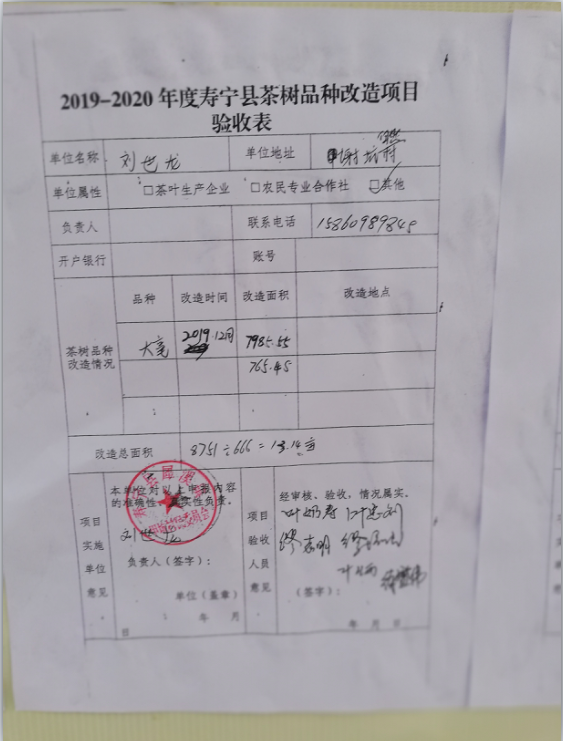 2019-2020年度寿宁县茶树品种改造项目
验收表
单位名称 刘世龙 单位地址
单位属性 □茶叶生产企业 □农民专业合作社 □其他
负责人 联系电话 15860989845
开户银行 账号
品种 改造时间 改造面积 改造地点
茶树品种
改造情况
2019.12月 7985.55
765.45
改造总面积 8751÷666=13.14亩
本单位对以上申报内容
的准确性、真实性负责。
项目
实施
单位
意见
刘世龙
负责人(签字):
单位(盖章)
年 月
日
经审核、验收,情况属实。
项目
验收
人员
意见
(签字):
年 月 日